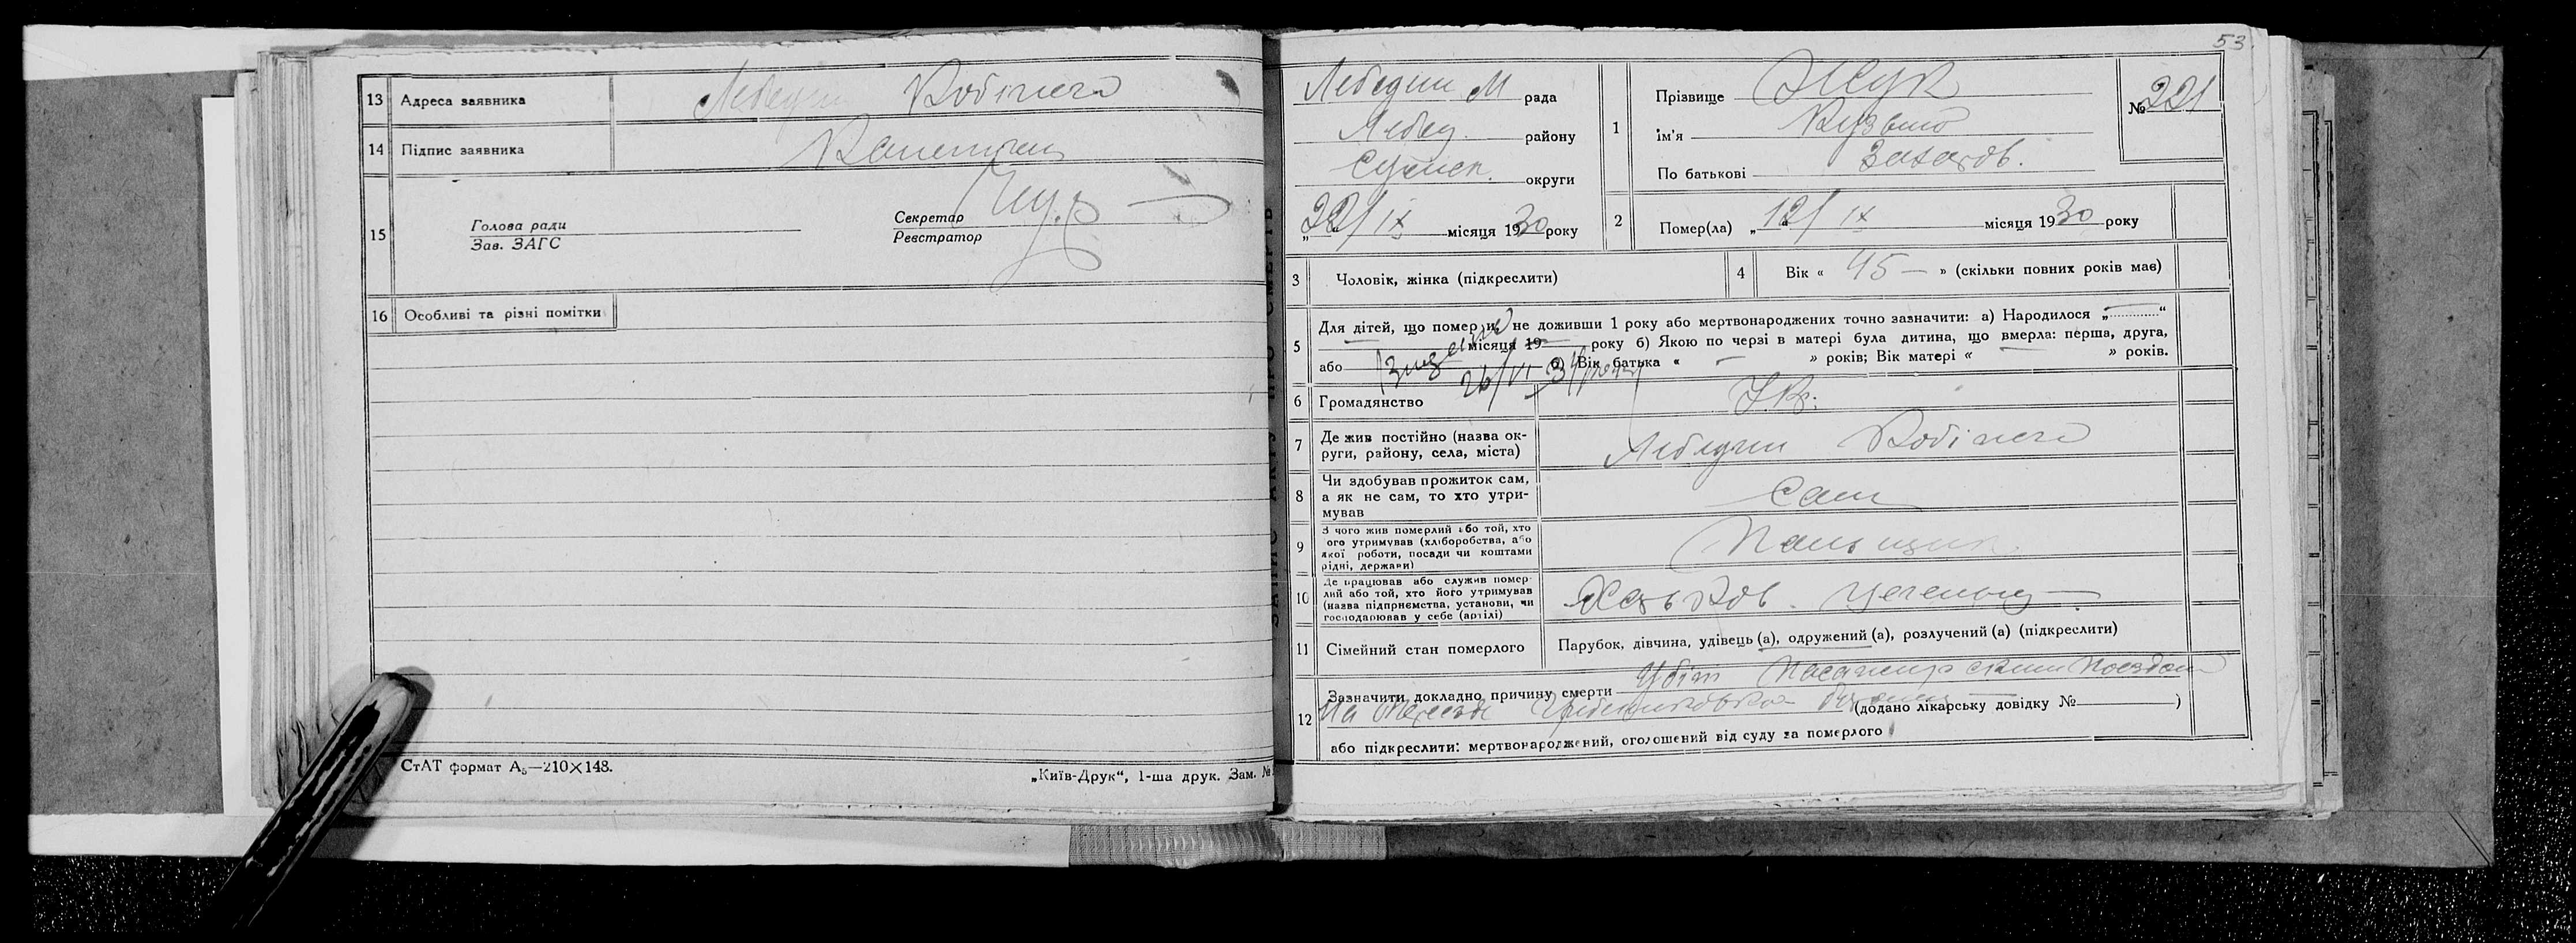 13 Адреса заявника Лебедин Кобіжча
14 Підпис заявника
15 Голова ради
Зав. ЗАГС
Секретар
Реєстратор
16 Особливі та різні помітки
СтАТ формат А₅—210×148.
„Київ-Друк“, 1-ша друк. Зам. №
53
Лебедин М рада
Лебед. району
Сумск. округи
„22/ ІХ місяця 1930 року
1 Прізвище Жук
ім'я Кузьма
По батькові Захаров.
№ 221
2 Помер(ла) „12/ ІХ місяця 1930 року
3 Чоловік, жінка (підкреслити)
4 Вік « 45 — » (скільки повних років мав)
5 Для дітей, що померли не доживши 1 року або мертвонароджених точно зазначити: а) Народилося „ “
місяця 19 року б) Якою по черзі в матері була дитина, що вмерла: перша, друга,
або Вік батька « — » років; Вік матері « » років.
26/VI
6 Громадянство Укр.
7 Де жив постійно (назва округи, району, села, міста) Лебедин
8 Чи здобував прожиток сам, а як не сам, то хто утримував Сам
9 З чого жив померлий або той, хто його утримував (хліборобства, або якої роботи, посади чи коштами рідні, держави)
10 Де працював або служив померлий або той, хто його утримував (назва підприємства, установи, чи господарював у себе (артілі) Харьков.
11 Сімейний стан померлого Парубок, дівчина, удівець (а), одружений (а), розлучений (а) (підкреслити)
12 Зазначити докладно причину смерти Убіт Пасажирским поездом
на (додано лікарську довідку № )
або підкреслити: мертвонароджений, оголошений від суду за померлого